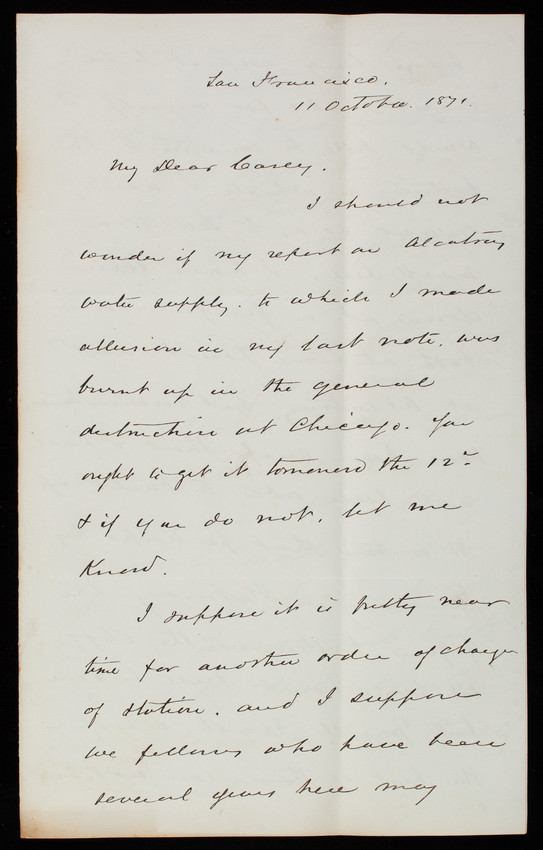 San Francisco.
11 October. 1871.
My Dear Casey.
I should not
wonder if my report on Alcatraz
water supply. to which I made
allusion in my last note. was
burnt up in the general
destruction at Chicago. You
ought to get it tomorrow the 12th
& if you do not, let me
know.
I suppose it is pretty near
time for another order of changes
of station. and I suppose
we fellows who have been
several years here may